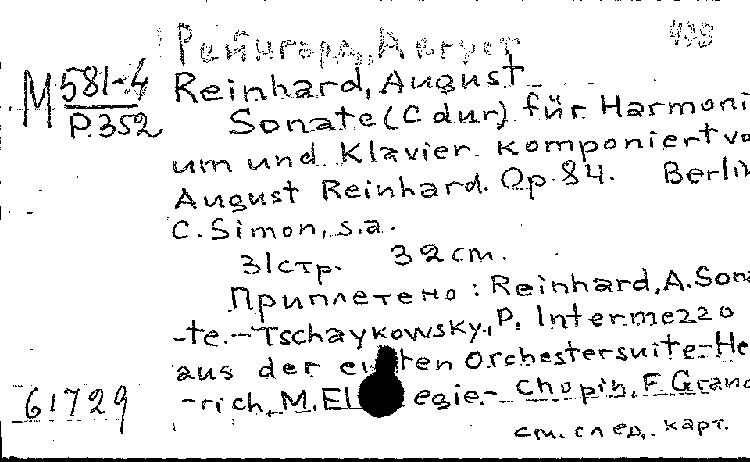 Рейнгард, Август 433
М 581-4
Р.352
Reinhard, August
Sonate (C dur) für Harmoni
um und Klavier komponiert vo
August Reinhard. Op. 84. Berlin
C. Simon, s.a.
31 стр. 32 cm.
Приплетено: Reinhard, A. Sona
-te.-Tschaykowsky, P. Intermezzo
aus der ersten Orchestersuite-He
-rich, M. El egie.- Chopin, F. Grand
61729
см. след. карт.